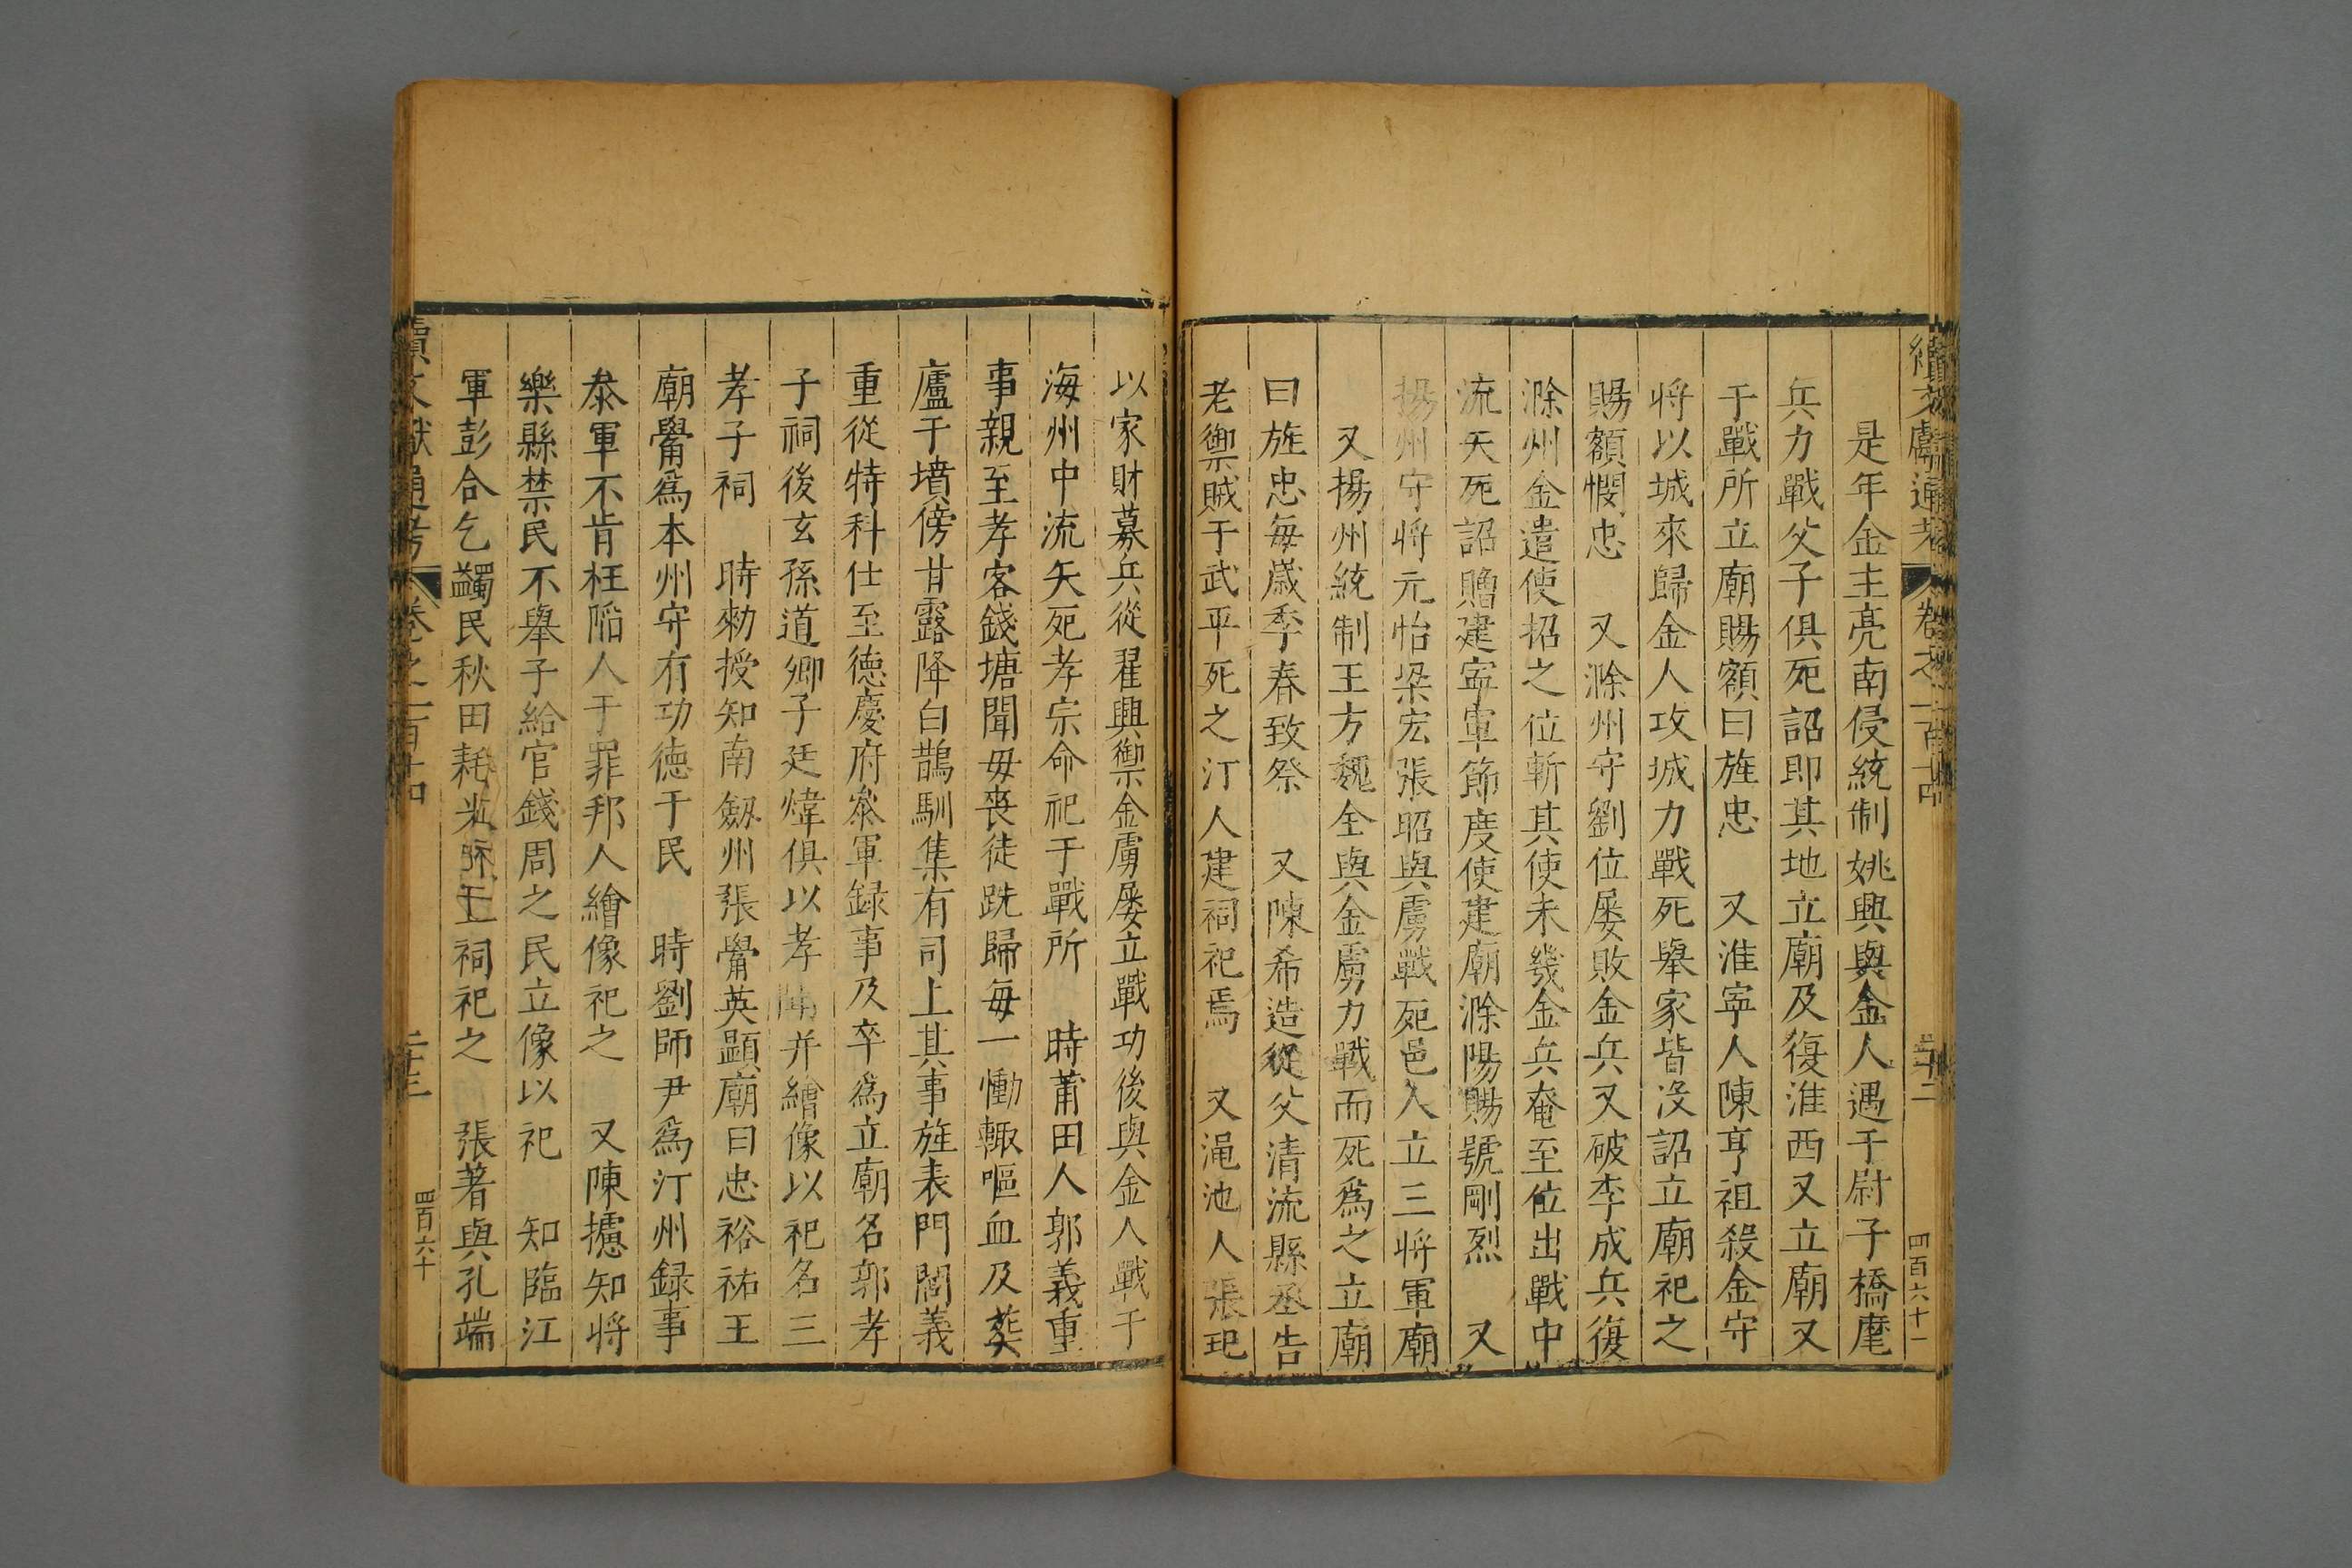 續文獻通考 卷之一百十四 四百六十一
是年金主亮南侵統制姚興與金人遇于尉子橋麾
兵力戰父子俱死詔即其地立廟及復淮西又立廟又
于戰所立廟賜額曰旌忠 又淮寧人陳亨祖殺金守
將以城來歸金人攻城力戰死舉家皆沒詔立廟祀之
賜額憫忠 又滁州守劉位屡敗金兵又破李成兵復
滁州金遣使招之位斬其使未幾金兵奄至位出戰中
流矢死詔贈建寧軍節度使建廟滁陽賜號剛烈 又
揚州守將元怡梁宏張昭與虜戰死邑人立三將軍廟
又揚州統制王方魏全與金虜力戰而死爲之立廟
曰旌忠每歲季春致祭 又陳希造從父清流縣丞告
老禦賊于武平死之汀人建祠祀焉 又澠池人張玘
以家財募兵從翟興禦金虜屡立戰功後與金人戰于
海州中流矢死孝宗命祀于戰所 時莆田人郭義重
事親至孝客錢塘聞母喪徒跣歸每一慟輙嘔血及葬
廬于墳傍甘露降白鵲馴集有司上其事旌表門閭義
重從特科仕至德慶府叅軍録事及卒爲立廟名郭孝
子祠後玄孫道卿子廷煒俱以孝聞并繪像以祀名三
孝子祠 時勑授知南劔州張觷英顯廟曰忠裕祐王
廟觷爲本州守有功德于民 時劉師尹爲汀州録事
叅軍不肯枉陷人于罪邦人繪像祀之 又陳攄知將
樂縣禁民不舉子給官錢周之民立像以祀 知臨江
軍彭合乞蠲民秋田耗米 立祠祀之 張著與孔端
續文獻通考 卷之一百十四 二十三 四百六十